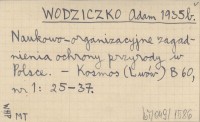 WODZICZKO Adam 1935b.
Naukowo-organizacyjne zagad-
nienia ochrony przyrody w
Polsce. – Kosmos (Lwów) B 60,
nr 1: 25-37.
WHP MT